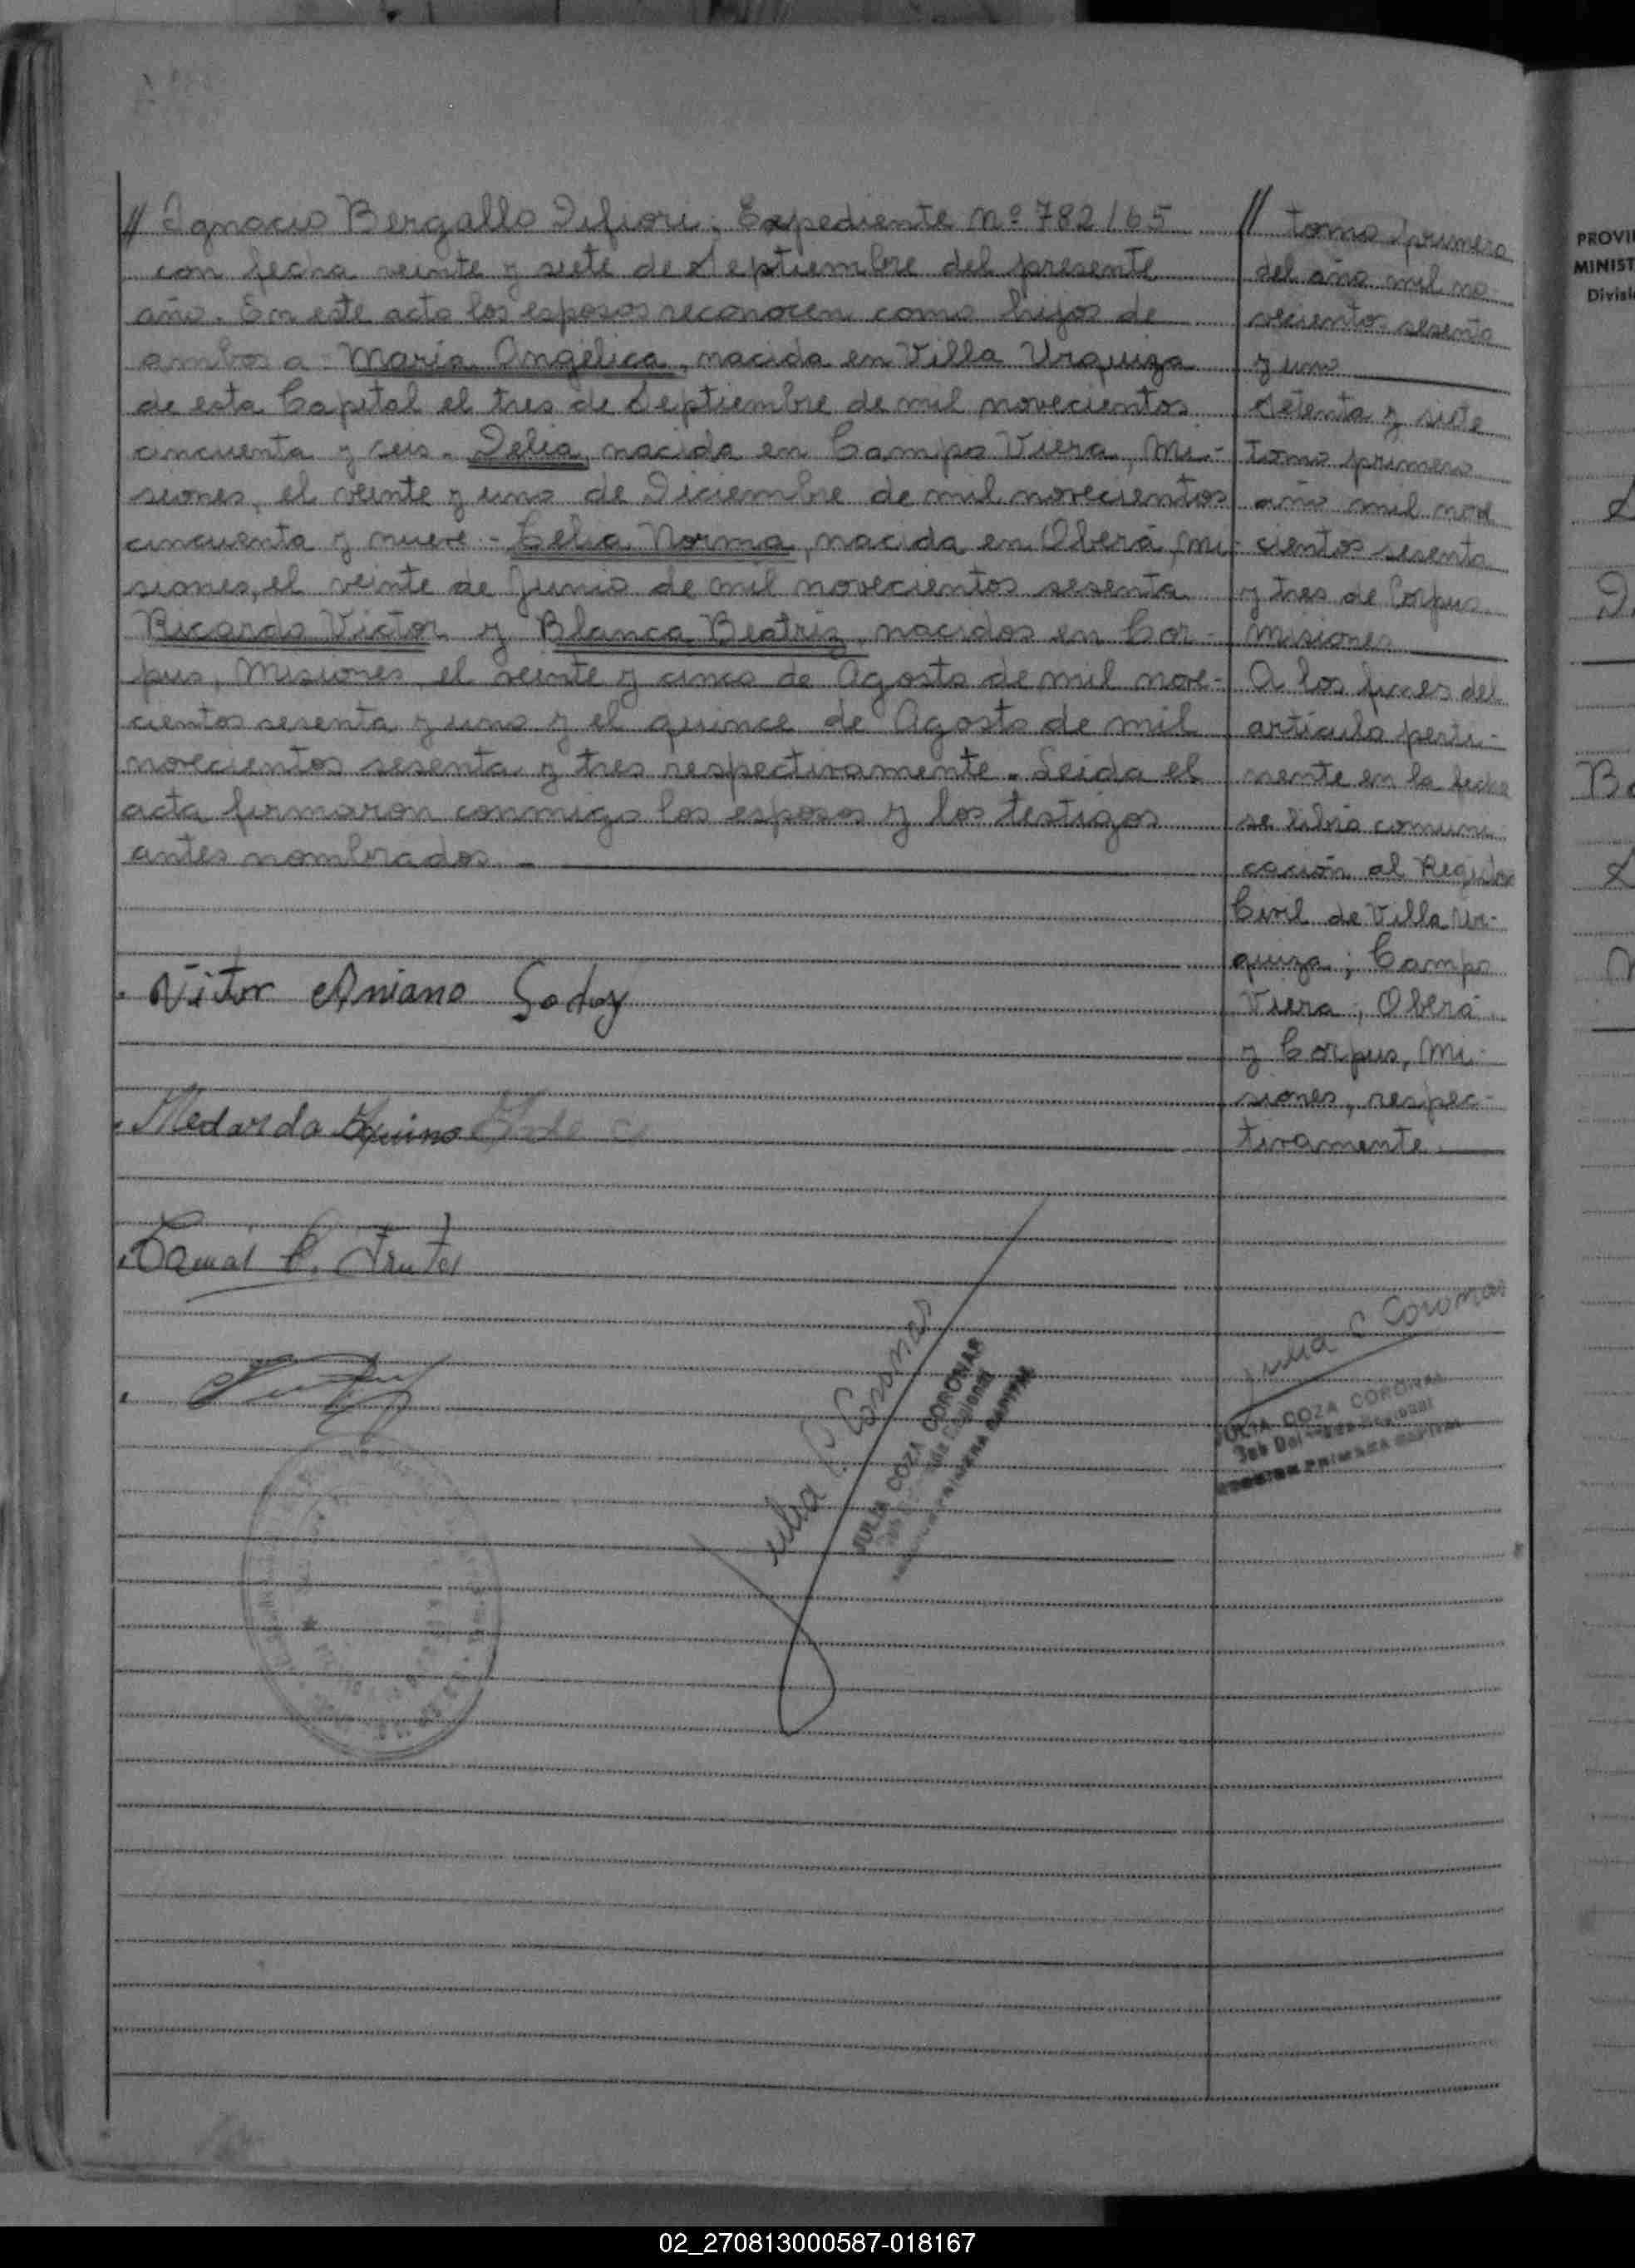 // Ignacio Bergallo Difiori; Expediente Nº 782/65
con fecha veinte y siete de Septiembre del presente
año. En este acto los esposos reconocen como hijos de
ambos a: María Angélica, nacida en Villa Urquiza
de esta Capital el tres de Septiembre de mil novecientos
cincuenta y seis. Delia, nacida en Campo Viera, Mi-
siones, el veinte y uno de Diciembre de mil novecientos
cincuenta y nueve - Celia Norma, nacida en Oberá, Mi-
siones, el veinte de Junio de mil novecientos sesenta
Ricardo Victor y Blanca Beatriz, nacidos en Cor-
pus, Misiones, el veinte y cinco de Agosto de mil nove-
cientos sesenta y uno y el quince de Agosto de mil
novecientos sesenta y tres respectivamente. Leida el
acta firmaron conmigo los esposos y los testigos
antes nombrados. -
Vitor Aniano Godoy
Medarda Aquino
C. Frutos
Julia C. Coronas
JULIA COZA CORONAS
PRIMERA CAPITAL
// tomo primero
del año mil no-
vecientos sesenta
y uno
Setenta y siete
tomo primero
año mil nove
cientos sesenta
y tres de Corpus
Misiones
A los fines del
artículo perti-
nente en la fecha
se libró comuni
cación al Registro
Civil de Villa Ur-
quiza; Campo
Viera; Oberá
y Corpus, Mi-
siones, respec-
tivamente.
Julia C Coronas
JULIA COZA CORONAS
PRIMERA CAPITAL
PROVI
MINIST
Divisi
02_270813000587-018167